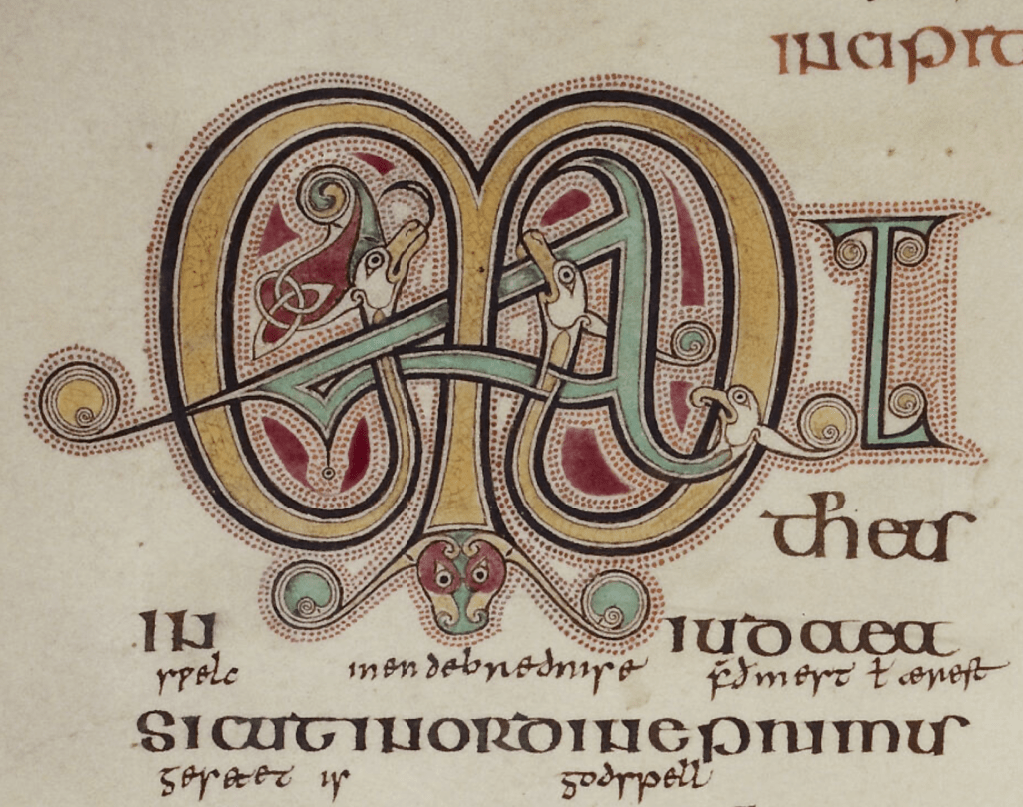 INCIPIT
MAT
theus
IN IUDAEA
sƿelc in endebrednise f̄dmest ł ærest
SICUT IN ORDINE PRIMUS
geseted is godspell